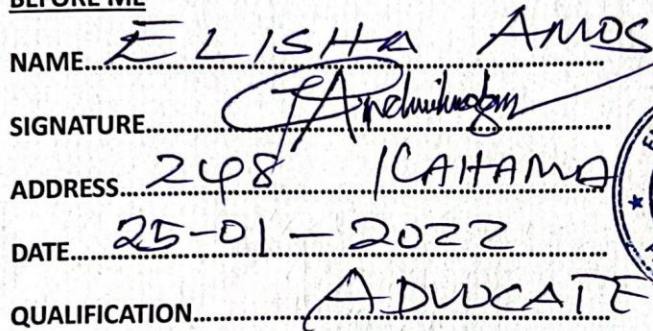 BEFORE ME
NAME... ELISHA AMOS
SIGNATURE...
ADDRESS... 248 KAHAMA
DATE... 25-01-2022
QUALIFICATION... ADVOCATE